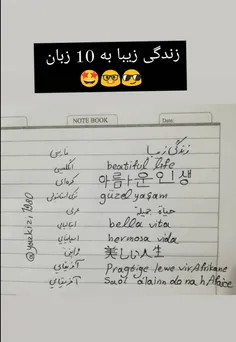 زندگی زیبا به 10 زبان
🤩🤓😎
NOTE BOOK Date:
زندگی زیبا فارسی
beatiful life انگلیسی
아름다운 인생 کره‌ای
güzel yaşam ترکی استانبولی
حياة جميلة عربی
bella vita ایتالیایی
hermosa vida اسپانیایی
美しい人生 ژاپنی
Pragtige lewe vir Afrikane
Saol álainn do na hAfraice